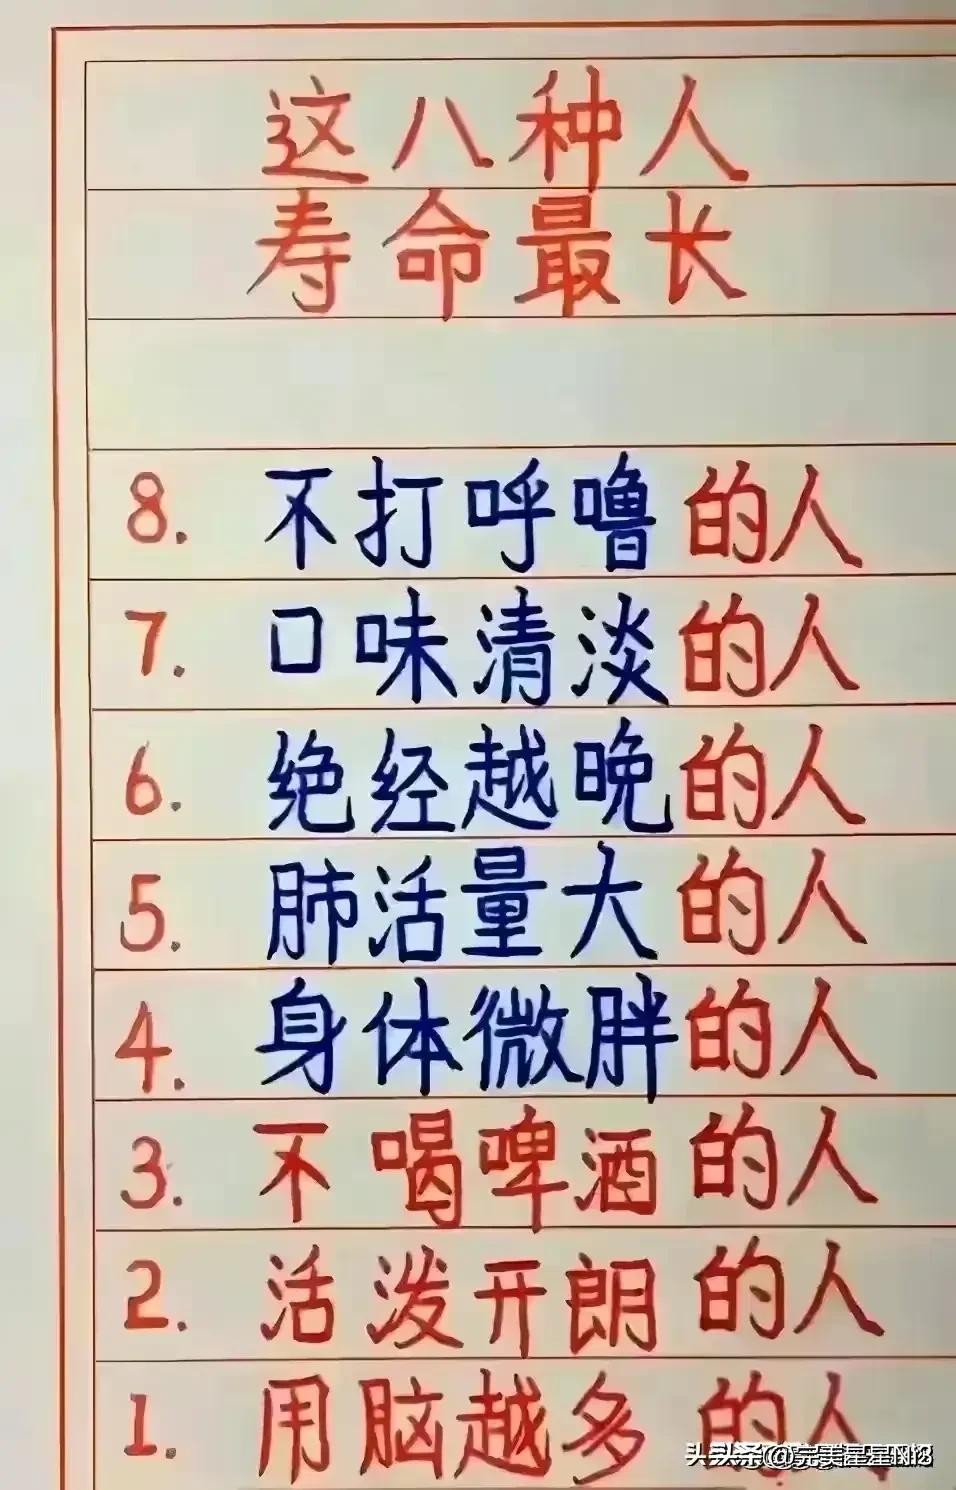 这八种人
寿命最长
8. 不打呼噜的人
7. 口味清淡的人
6. 绝经越晚的人
5. 肺活量大的人
4. 身体微胖的人
3. 不喝啤酒的人
2. 活泼开朗的人
1. 用脑越多的人
头条@完美星星